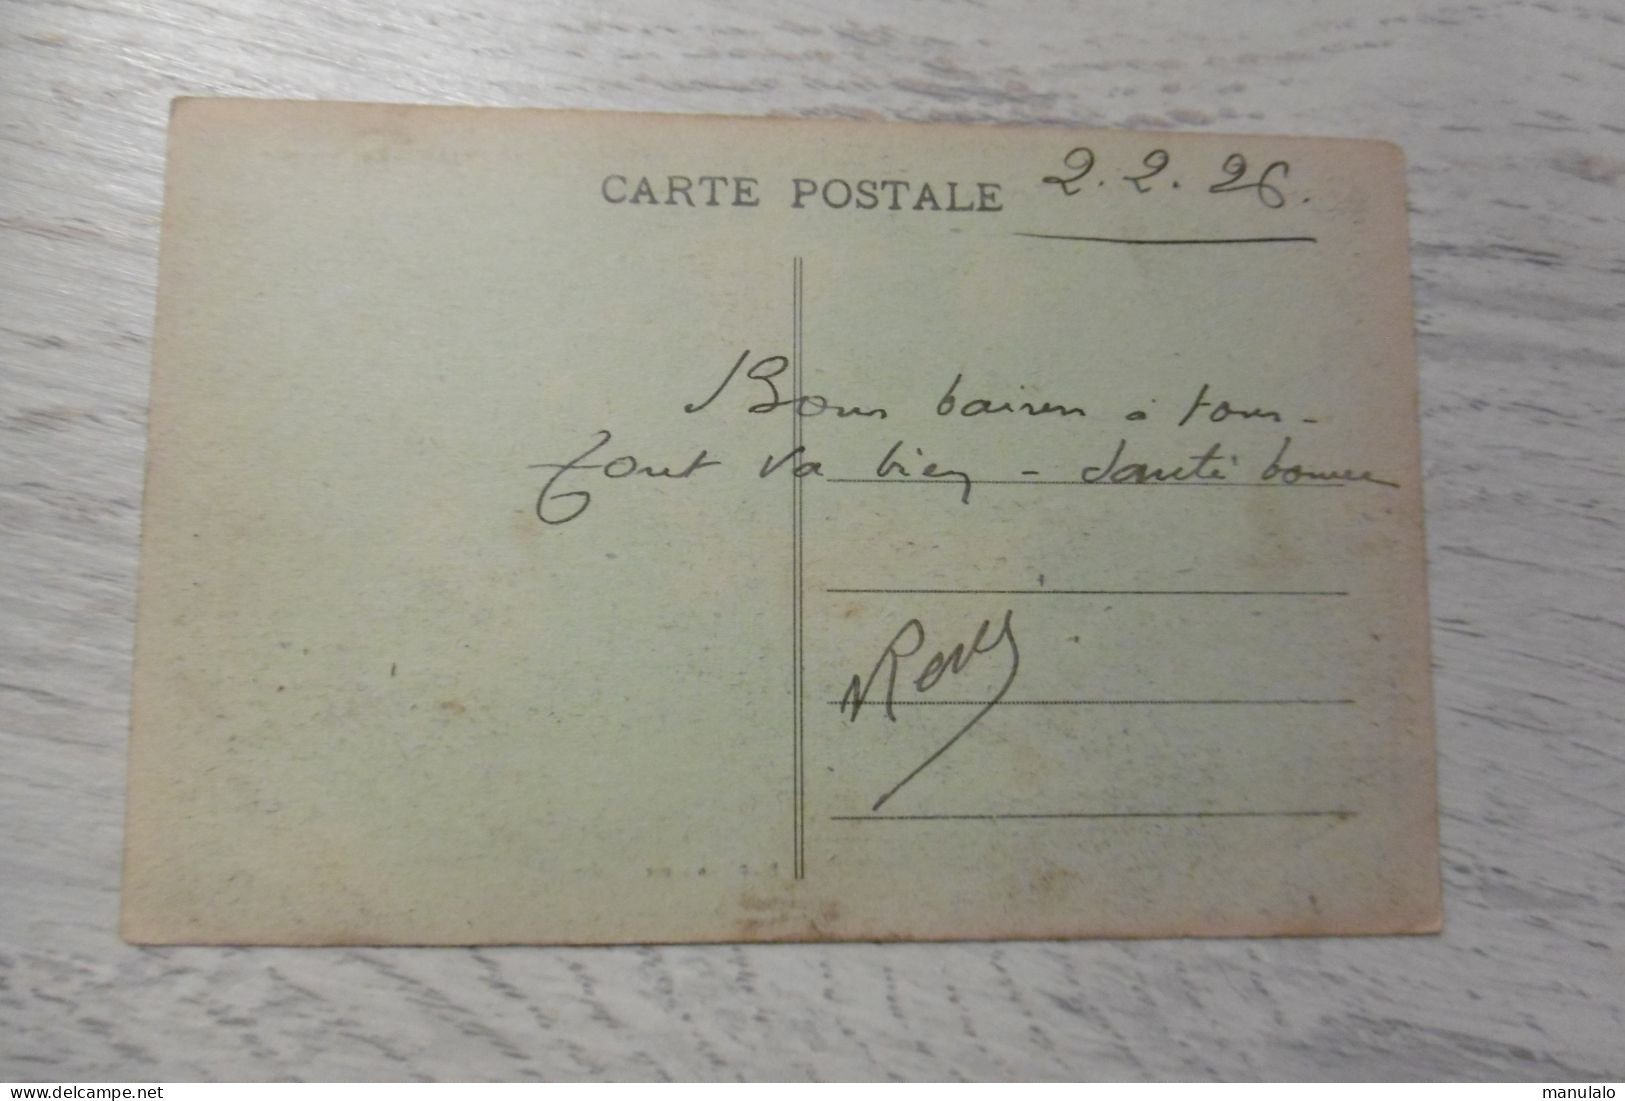 CARTE POSTALE 2.2.26.
Bons baisers à tous -
Tout va bien - Santé bonne
delcampe.net
manulalo